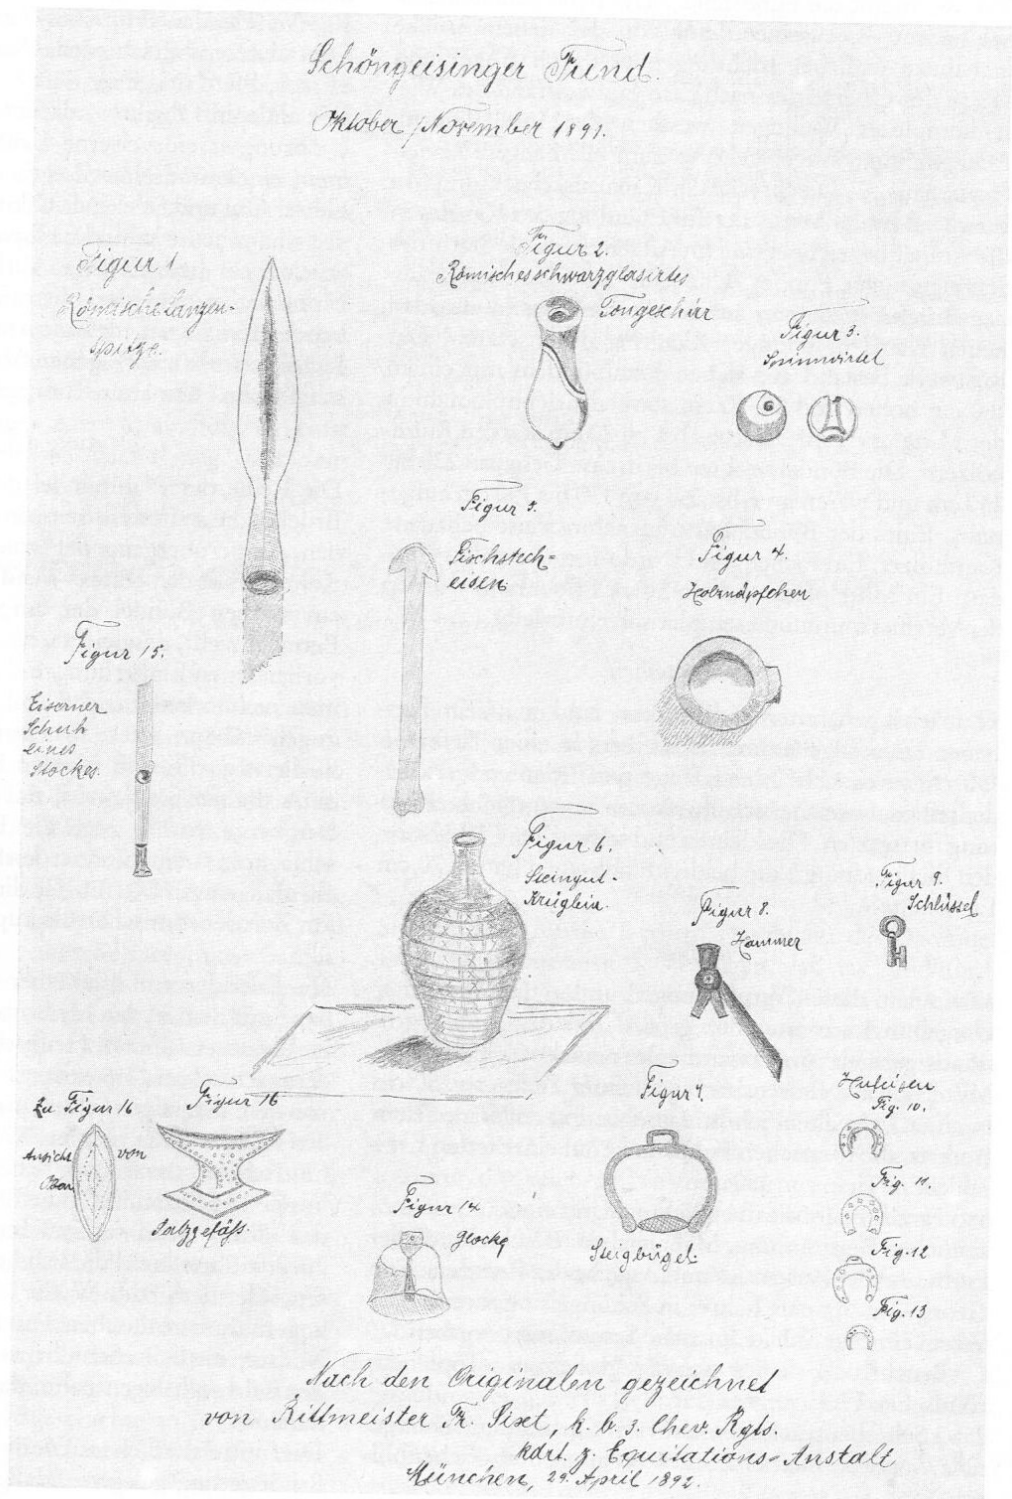 Schöngeisinger Fund.
Oktober/November 1891.
Figur 1
Römische Lanzen-
spitze.
Figur 2.
Römisches schwarzglasirtes
Tongeschirr
Figur 3.
Spinnwirtel
Figur 5.
Fischstech-
eisen
Figur 4.
Holznäpfchen
Figur 15.
Eiserner
Schuh
eines
Stockes.
Figur 6.
Steingut-
Krüglein.
Figur 8.
Hammer
Figur 9.
Schlüssel
Zu Figur 16
Ansicht von
Oben
Figur 16
Salzgefäss.
Figur 14
Glocke
Figur 7.
Steigbügel.
Hufeisen
Fig. 10.
Fig. 11.
Fig. 12
Fig. 13
Nach den Originalen gezeichnet
von Rittmeister Fr. Sixt, k. b. 3. Chev. Rgts.
kdrt. z. Equitations-Anstalt
München, 29. April 1892.